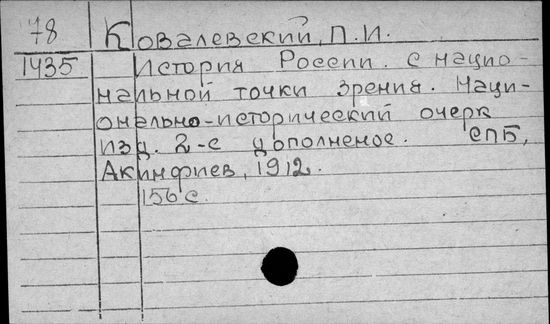 78 Ковалевский, П. И.
1435 История России. с нацио-
нальной точки зрения. Наци-
онально-исторический очерк
изд. 2-е дополненое. СПБ,
Акинфиев, 1912.
156 с.